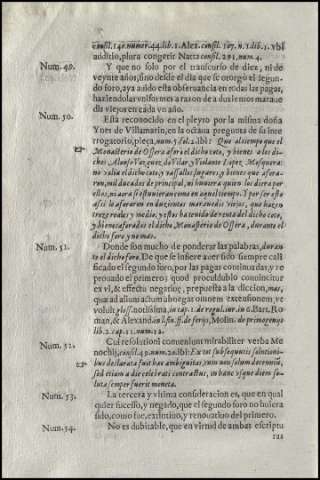 consil. 140. numer. 44. lib. 1. Alex. consil. 107. n. 1. lib. 5. vbi
additio, plura congerit Natta consil. 291. num. 4.
Num. 49. Y que no solo por el transcurso de diez, ni de
veynte años, sino desde el dia que se otorgò el segun-
do foro, aya auido esta obseruancia en todas las pagas,
haziendolas vniformes a razon de a duzientos maraue
dis viejos en cada vn año.
Num. 50. Esta reconocido en el pleyto por la misma doña
Ynes de Villamarin, en la octaua pregunta de su inte
rrogatorio, pieça, num. 7. fol. 2. ibi: Que al tiempo que el
Monasterio de Ossera aforò el dicho coto, y bienes a los di-
chos Alonso Vazquez, do Vilar, y Violante Lopez Mosquera:
no valia el dicho coto, y vassallos, lugares, y bienes que afora-
ron, mil ducados de principal, ni huuiera quien los diera por
ellos, ni aora se estuuieran como en aquel tiempo. Y por ser esto
assi la aforaron en duzientos marauedis viejos, que hazen
treze reales y medio, y estos ha tenido de renta del dicho coto,
y bienes aforados el dicho Monasterio de Ossera, durante el
dicho foro, y no mas.
Num. 51. Donde son mucho de ponderar las palabras, duran
te el dicho foro. De que se infiere auer sido siempre cali
ficado el segundo foro, por las pagas continuadas, y re
prouado el primero; quod proculdubio conuincitur
ex vi, & effectu negatiuę, prepuesta à la diccion, mas,
qua ad alium actum aborgas omnem extensionem, ve
voluit gloss. notissima, in cap. 1. de regul. iur. in 6. Bart. Ro
man, & Alexand. in l. fin. ff. de feriis, Molin. de primogenijs
lib. 2. cap. 11. num. 12.
Num. 52. Cui resolutioni comeniunt mirabiliter verba Me
nochij, consil. 45. num. 20. ibi: Ex tot subsequutis solutioni-
bus declarata fuit hæc ambiguitas; nam non solum de omnibus,
sed etiam a die celebrati contractus, in hanc vsque diem so-
luta semper fuerit moneta.
Num. 53. La tercera y vltima consideracion es, que en qual
quier sucesso, y negado, que el segundo foro no huuiera
sido, como fue, extintiuo, y renouatiuo del primero.
Num. 54. No es dubitable, que en virtud de ambas escriptu
ras